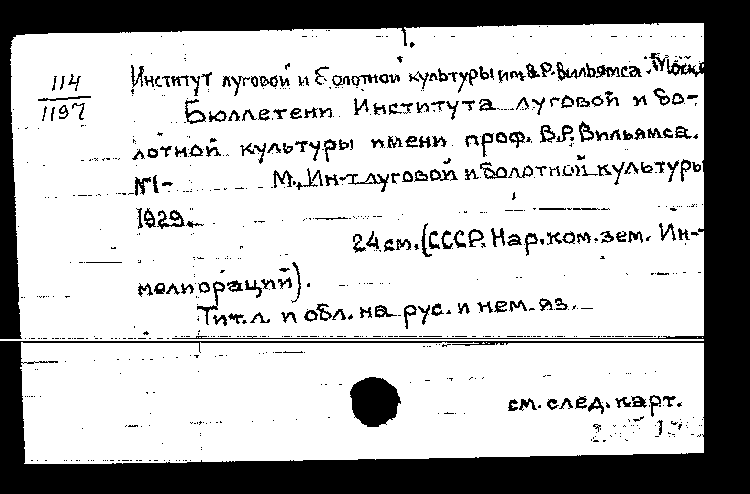 1.
114
1197
Институт луговой и болотной культуры им. В.Р. Вильямса. Москв
Бюллетени Института луговой и бо-
лотной культуры имени проф. В.Р. Вильямса.
№1-      М., Ин-т луговой и болотной культуры
1929.
24 см. (СССР. Нар.ком.зем. Ин-
мелиораций).
Тит.л. и обл. на рус. и нем. яз.
см. след. карт.